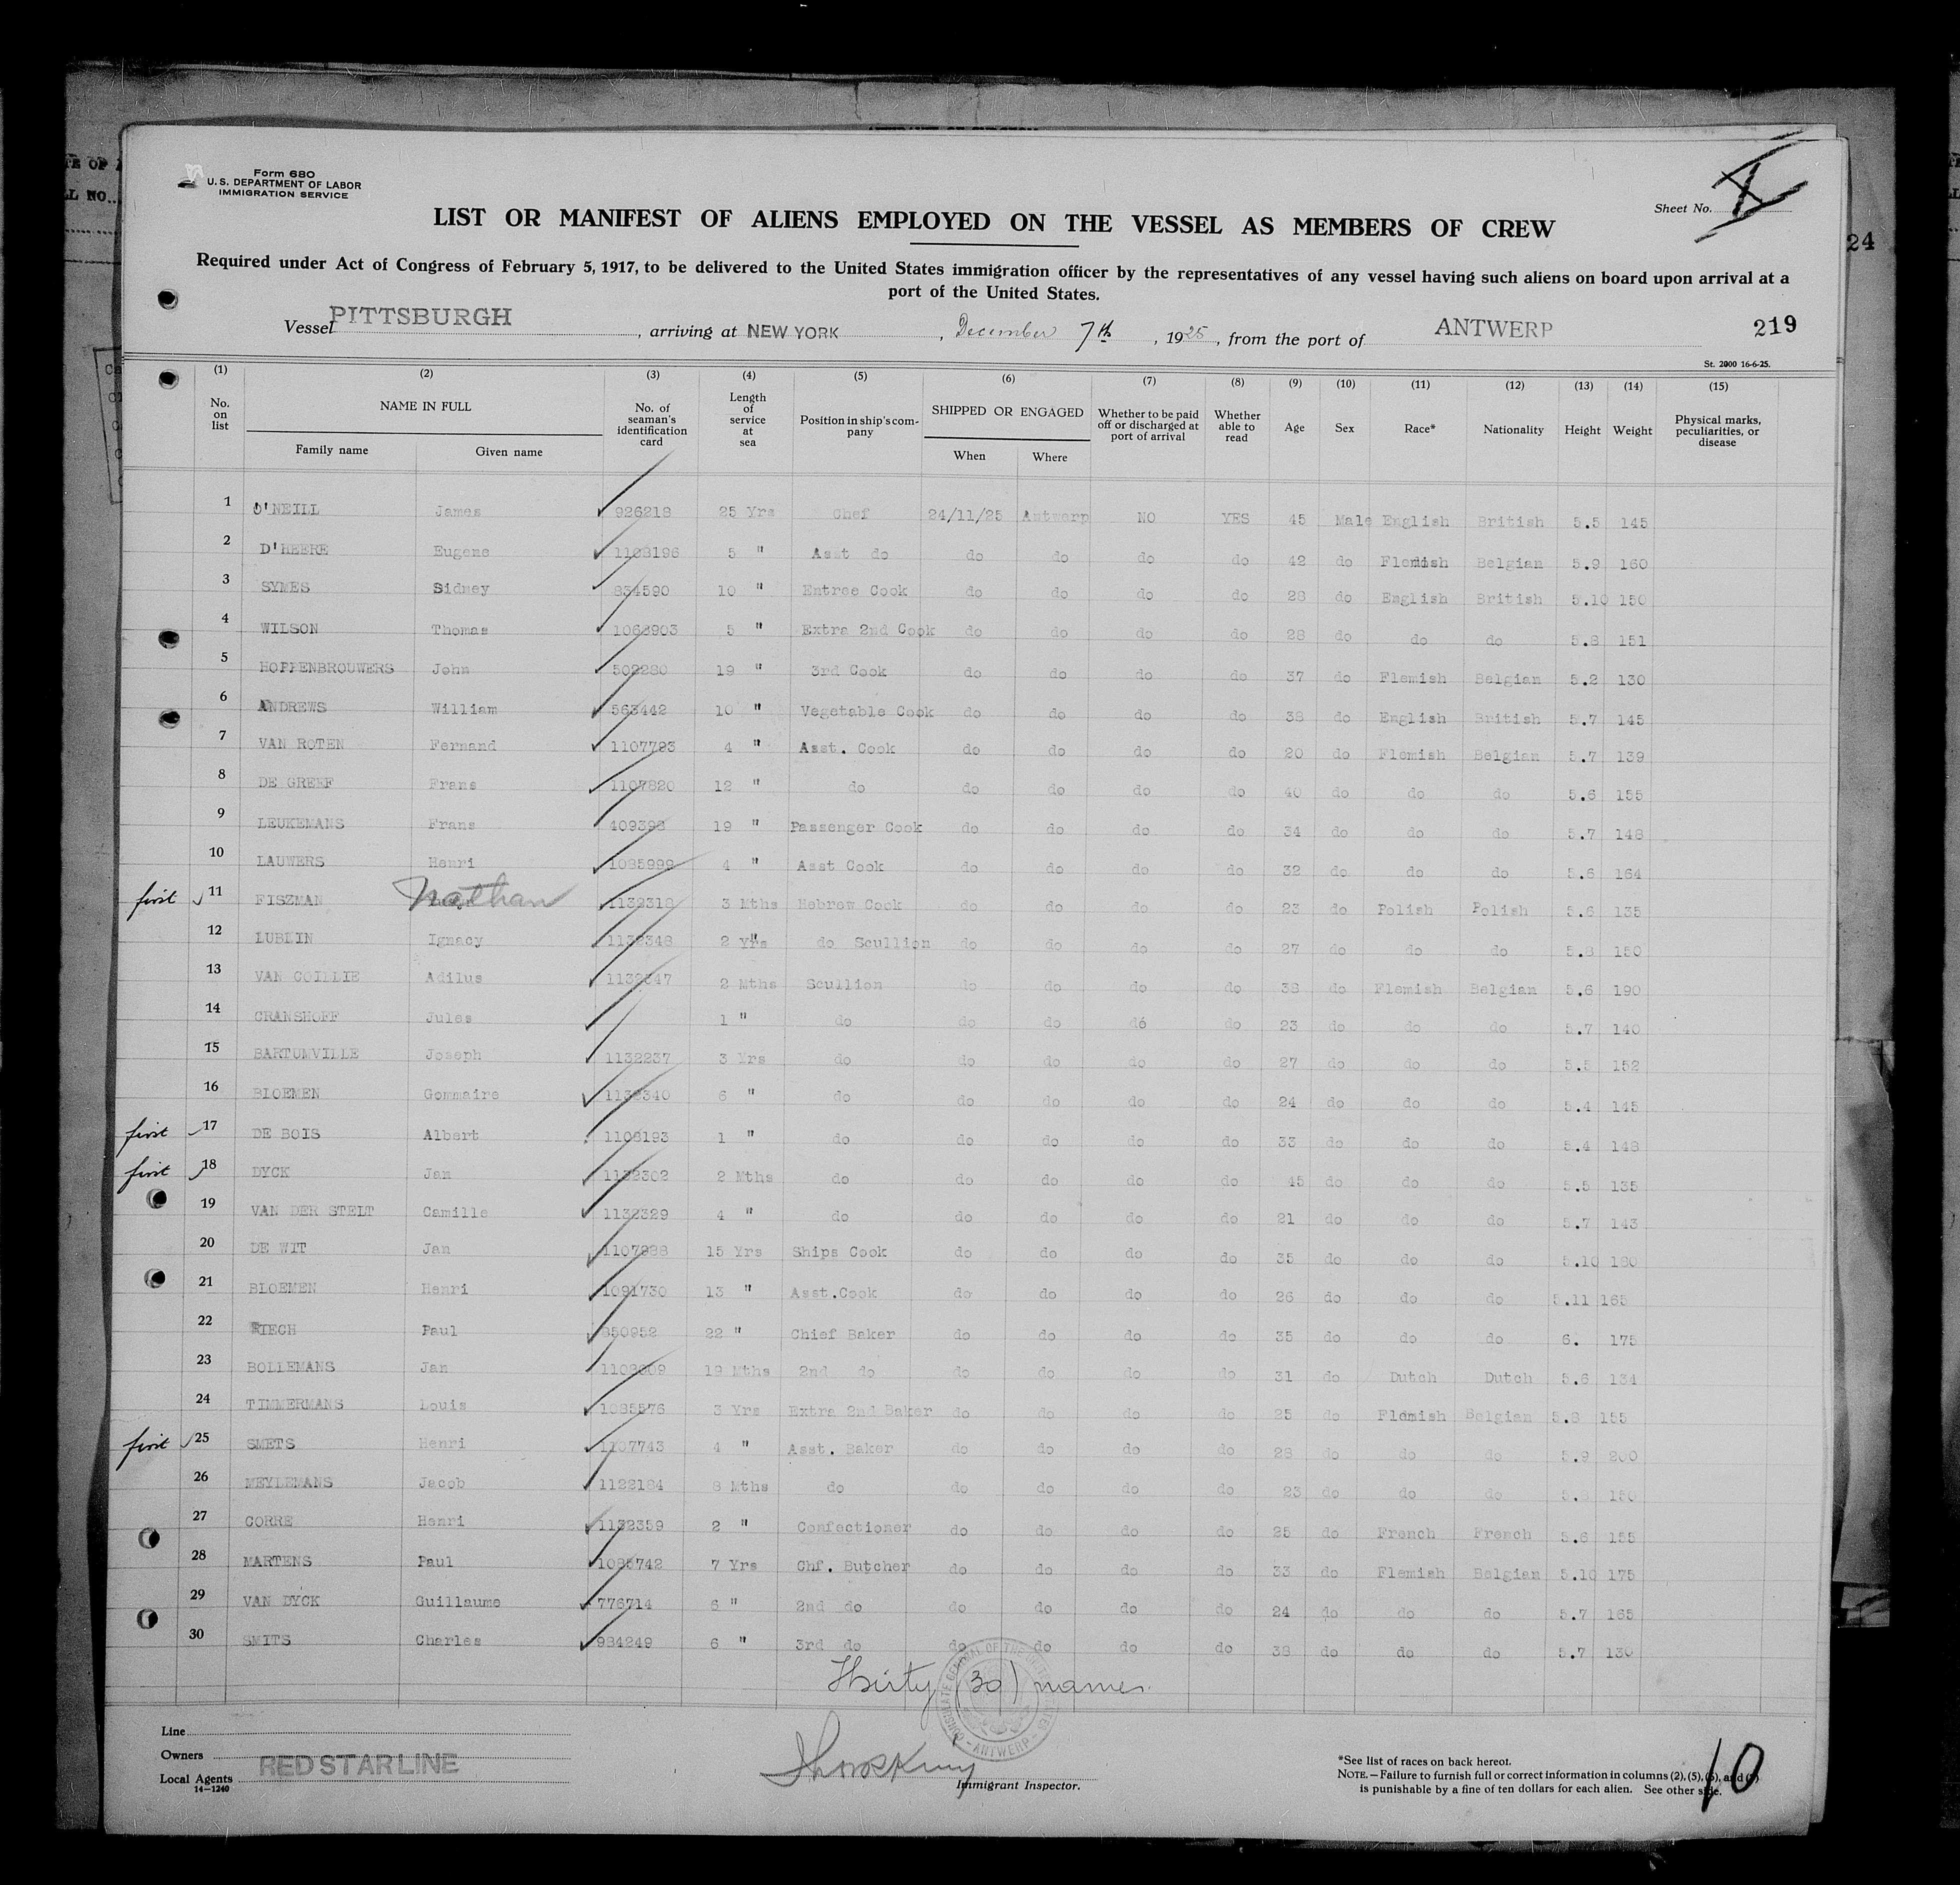 Form 680
U. S. DEPARTMENT OF LABOR
IMMIGRATION SERVICE
Sheet No. X
LIST OR MANIFEST OF ALIENS EMPLOYED ON THE VESSEL AS MEMBERS OF CREW
Required under Act of Congress of February 5, 1917, to be delivered to the United States immigration officer by the representatives of any vessel having such aliens on board upon arrival at a
port of the United States.
Vessel PITTSBURGH, arriving at NEW YORK, December 7th, 1925, from the port of ANTWERP 219
St. 2000 16-6-25.
(1) (2) (3) (4) (5) (6) (7) (8) (9) (10) (11) (12) (13) (14) (15)
No. on list NAME IN FULL Family name Given name No. of seaman's identification card Length of service at sea Position in ship's company SHIPPED OR ENGAGED When Where Whether to be paid off or discharged at port of arrival Whether able to read Age Sex Race* Nationality Height Weight Physical marks, peculiarities, or disease
1 O'NEILL James 926218 25 Yrs Chef 24/11/25 Antwerp NO YES 45 Male English British 5.5 145
2 D'HEERE Eugene 1108196 5 " Asst do do do do do 42 do Flemish Belgian 5.9 160
3 SYMES Sidney 834590 10 " Entree Cook do do do do 28 do English British 5.10 150
4 WILSON Thomas 1063903 5 " Extra 2nd Cook do do do do 28 do do do 5.8 151
5 HOPPENBROUWERS John 502280 19 " 3rd Cook do do do do 37 do Flemish Belgian 5.2 130
6 ANDREWS William 563442 10 " Vegetable Cook do do do do 38 do English British 5.7 145
7 VAN ROTEN Fernand 1107723 4 " Asst. Cook do do do do 20 do Flemish Belgian 5.7 139
8 DE GREEF Frans 1107820 12 " do do do do do 40 do do do 5.6 155
9 LEUKEMANS Frans 409398 19 " Passenger Cook do do do do 34 do do do 5.7 148
10 LAUWERS Henri 1085999 4 " Asst Cook do do do do 32 do do do 5.6 164
first 11 FISZMAN Nathan 1132318 3 Mths Hebrew Cook do do do do 23 do Polish Polish 5.6 135
12 LUBLIN Ignacy 1132348 2 Yrs do Scullion do do do do 27 do do do 5.8 150
13 VAN COILLIE Adilus 1132347 2 Mths Scullion do do do do 38 do Flemish Belgian 5.6 190
14 CRANSHOFF Jules 1 " do do do do do 23 do do do 5.7 140
15 BARTUMVILLE Joseph 1132237 3 Yrs do do do do do 27 do do do 5.5 152
16 BLOEMEN Gommaire 1132340 6 " do do do do do 24 do do do 5.4 145
first 17 DE BOIS Albert 1108193 1 " do do do do do 33 do do do 5.4 148
first 18 DYCK Jan 1132302 2 Mths do do do do do 45 do do do 5.5 135
19 VAN DER STELT Camille 1132329 4 " do do do do do 21 do do do 5.7 143
20 DE WIT Jan 15 Yrs Ships Cook do do do do 35 do do do 5.10 180
21 BLOEMEN Henri 1091730 13 " Asst.Cook do do do do 26 do do do 5.11 165
22 RIECH Paul 850952 22 " Chief Baker do do do do 35 do do do 6. 175
23 BOLLEMANS Jan 2nd do do do do do 31 do Dutch Dutch 5.6 134
24 TIMMERMANS Louis 1085576 3 Yrs Extra 2nd Baker do do do do 25 do Flemish Belgian 5.8 155
first 25 SMETS Henri 1107743 4 " Asst. Baker do do do do 28 do do do 5.9 200
26 MEYLEMANS Jacob 1122184 8 Mths do do do do do 23 do do do 150
27 CORRE Henri 1132359 2 " Confectioner do do do do 25 do French French 5.6 155
28 MARTENS Paul 1085742 7 Yrs Chf. Butcher do do do do 33 do Flemish Belgian 5.10 175
29 VAN DYCK Guillaume 776714 6 " 2nd do do do do do 24 do do do 5.7 165
30 SMITS Charles 984249 6 " 3rd do do do do do 38 do do do 5.7 130
Thirty (30) names.
Line
Owners RED STAR LINE
Local Agents
14-1240
Immigrant Inspector.
*See list of races on back hereof.
NOTE.—Failure to furnish full or correct information in columns (2), (5), (6), and (7)
is punishable by a fine of ten dollars for each alien. See other side.
10
24